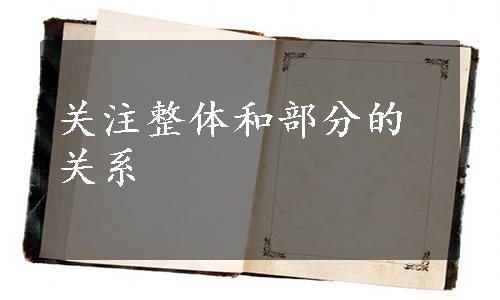 关注整体和部分的
关系